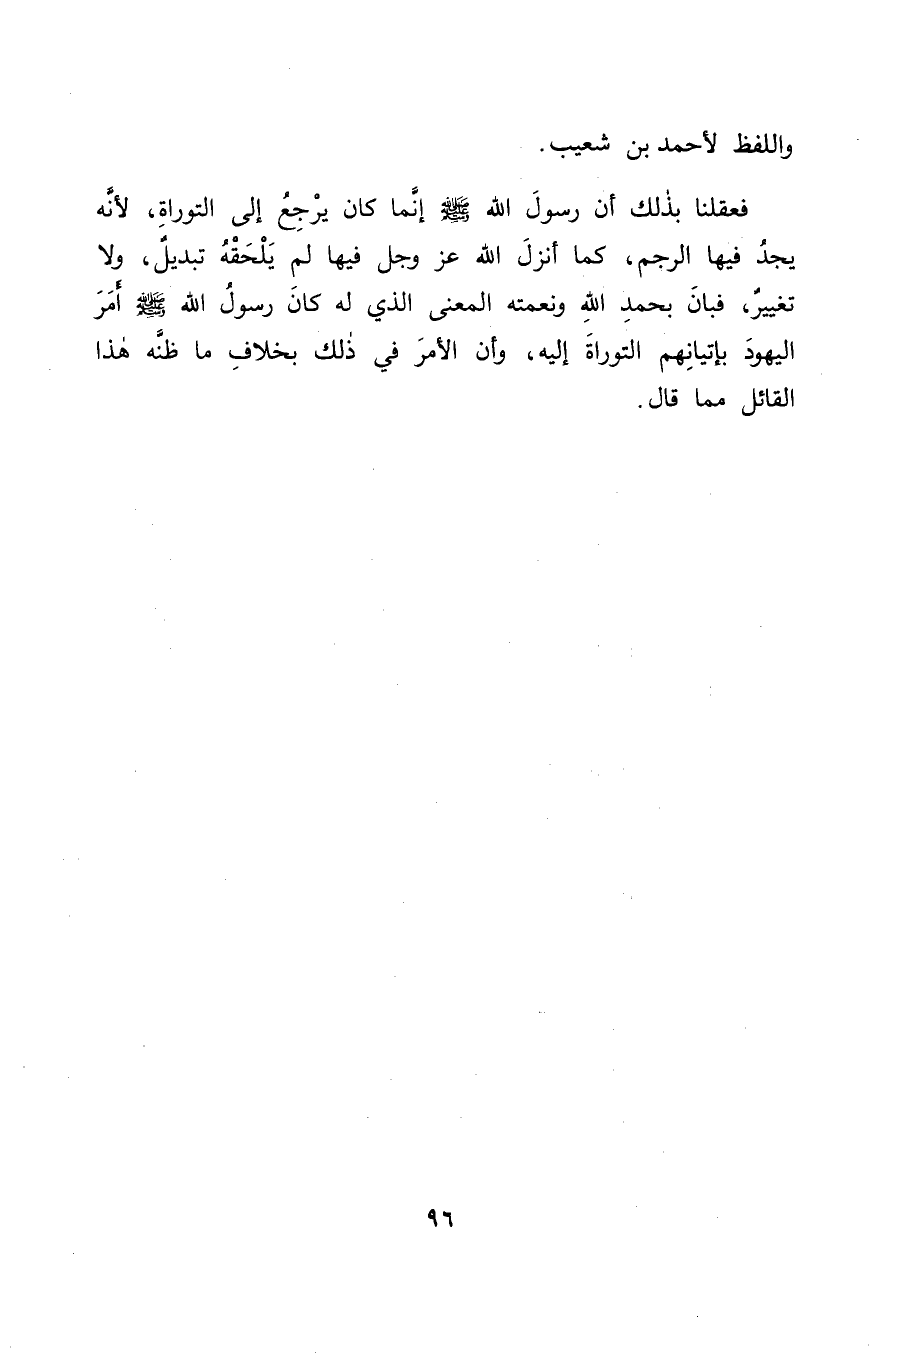 واللفظ لأحمد بن شعيب.
فعقلنا بذٰلك أن رسولَ الله ﷺ إنَّما كان يرْجِعُ إلى التوراةِ، لأنَّه
يجدُ فيها الرجم، كما أنزلَ الله عز وجل فيها لم يَلْحَقْهُ تبديلٌ، ولا
تغييرٌ، فبانَ بحمدِ اللهِ ونعمته المعنى الذي له كانَ رسولُ الله ﷺ أَمَرَ
اليهودَ بإتيانِهم التوراةَ إليه، وأن الأمرَ في ذٰلك بخلافِ ما ظنَّه هٰذا
القائل مما قال.
٩٦